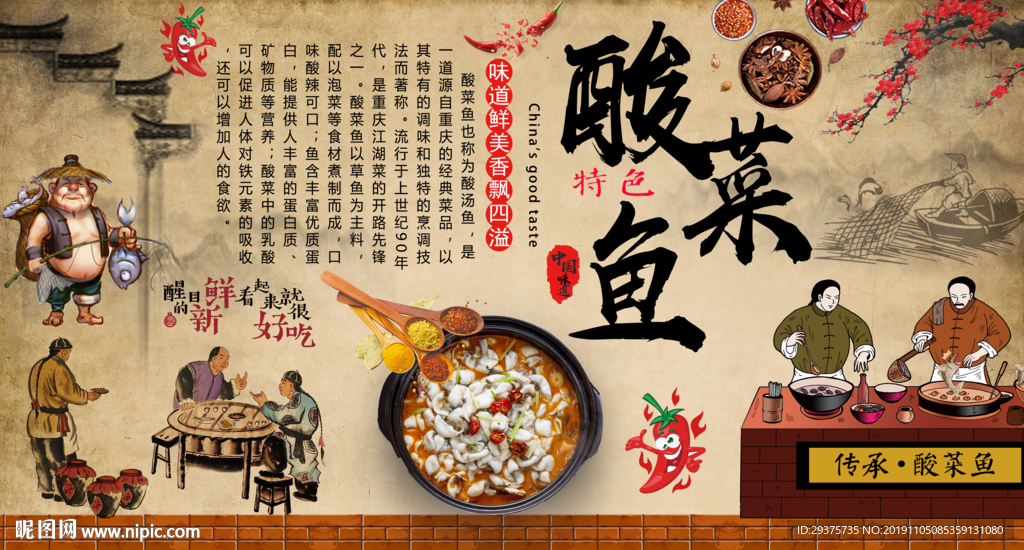 酸菜鱼
特色
中国味道
China's good taste
味道鲜美香飘四溢
酸菜鱼也称为酸汤鱼，是
一道源自重庆的经典菜品，以
其特有的调味和独特的烹调技
法而著称。流行于上世纪90年
代，是重庆江湖菜的开路先锋
之一。酸菜鱼以草鱼为主料，
配以泡菜等食材煮制而成，口
味酸辣可口；鱼含丰富优质蛋
白，能提供人丰富的蛋白质、
矿物质等营养；酸菜中的乳酸
可以促进人体对铁元素的吸收
，还可以增加人的食欲。
醒目的新鲜
看起来就很好吃
传承·酸菜鱼
昵图网 www.nipic.com
ID:29375735 NO:20191105085359131080